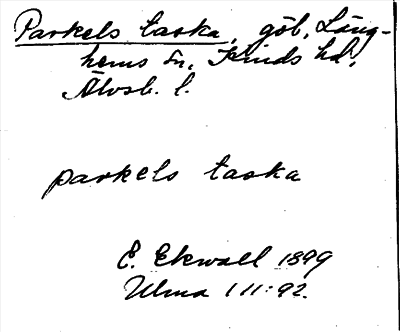 Parkels taska, göb, Läng-
hems sn, Kinds hd,
Älvsb. l.
parkels taska
E. Ekwall 1899
Ulma 111:92.